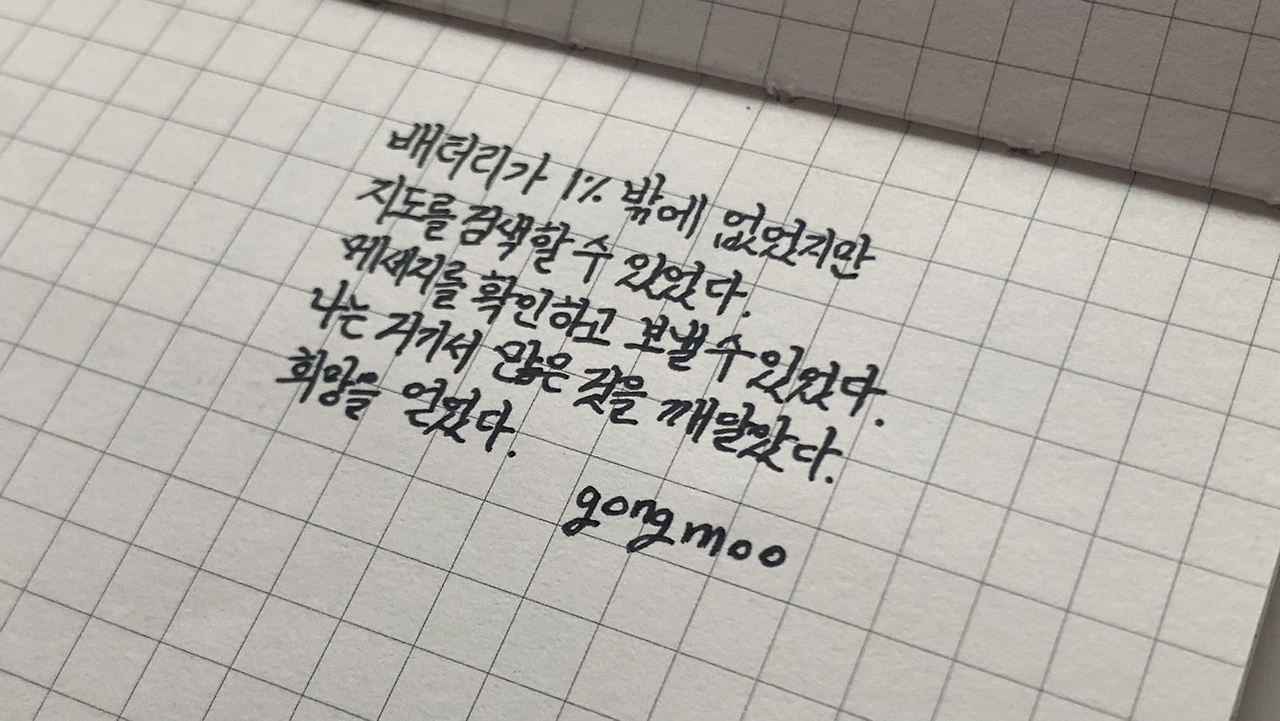 배터리가 1% 밖에 없었지만
지도를 검색할 수 있었다.
메세지를 확인하고 보낼 수 있었다.
나는 거기서 많은 것을 깨달았다.
희망을 얻었다.
gongmoo